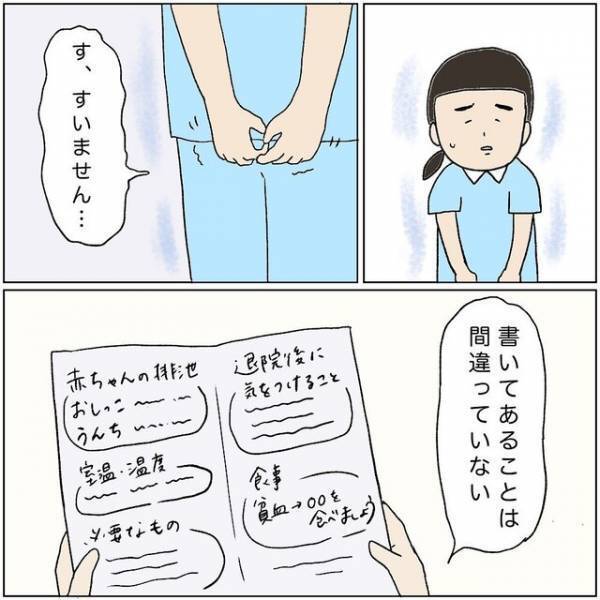 す、すいません…
書いてあることは
間違っていない
赤ちゃんの排池
おしっこ
うんち
室温・温度
必要なもの
退院後に
気をつけること
食事
貧血→〇〇を
食べましょう